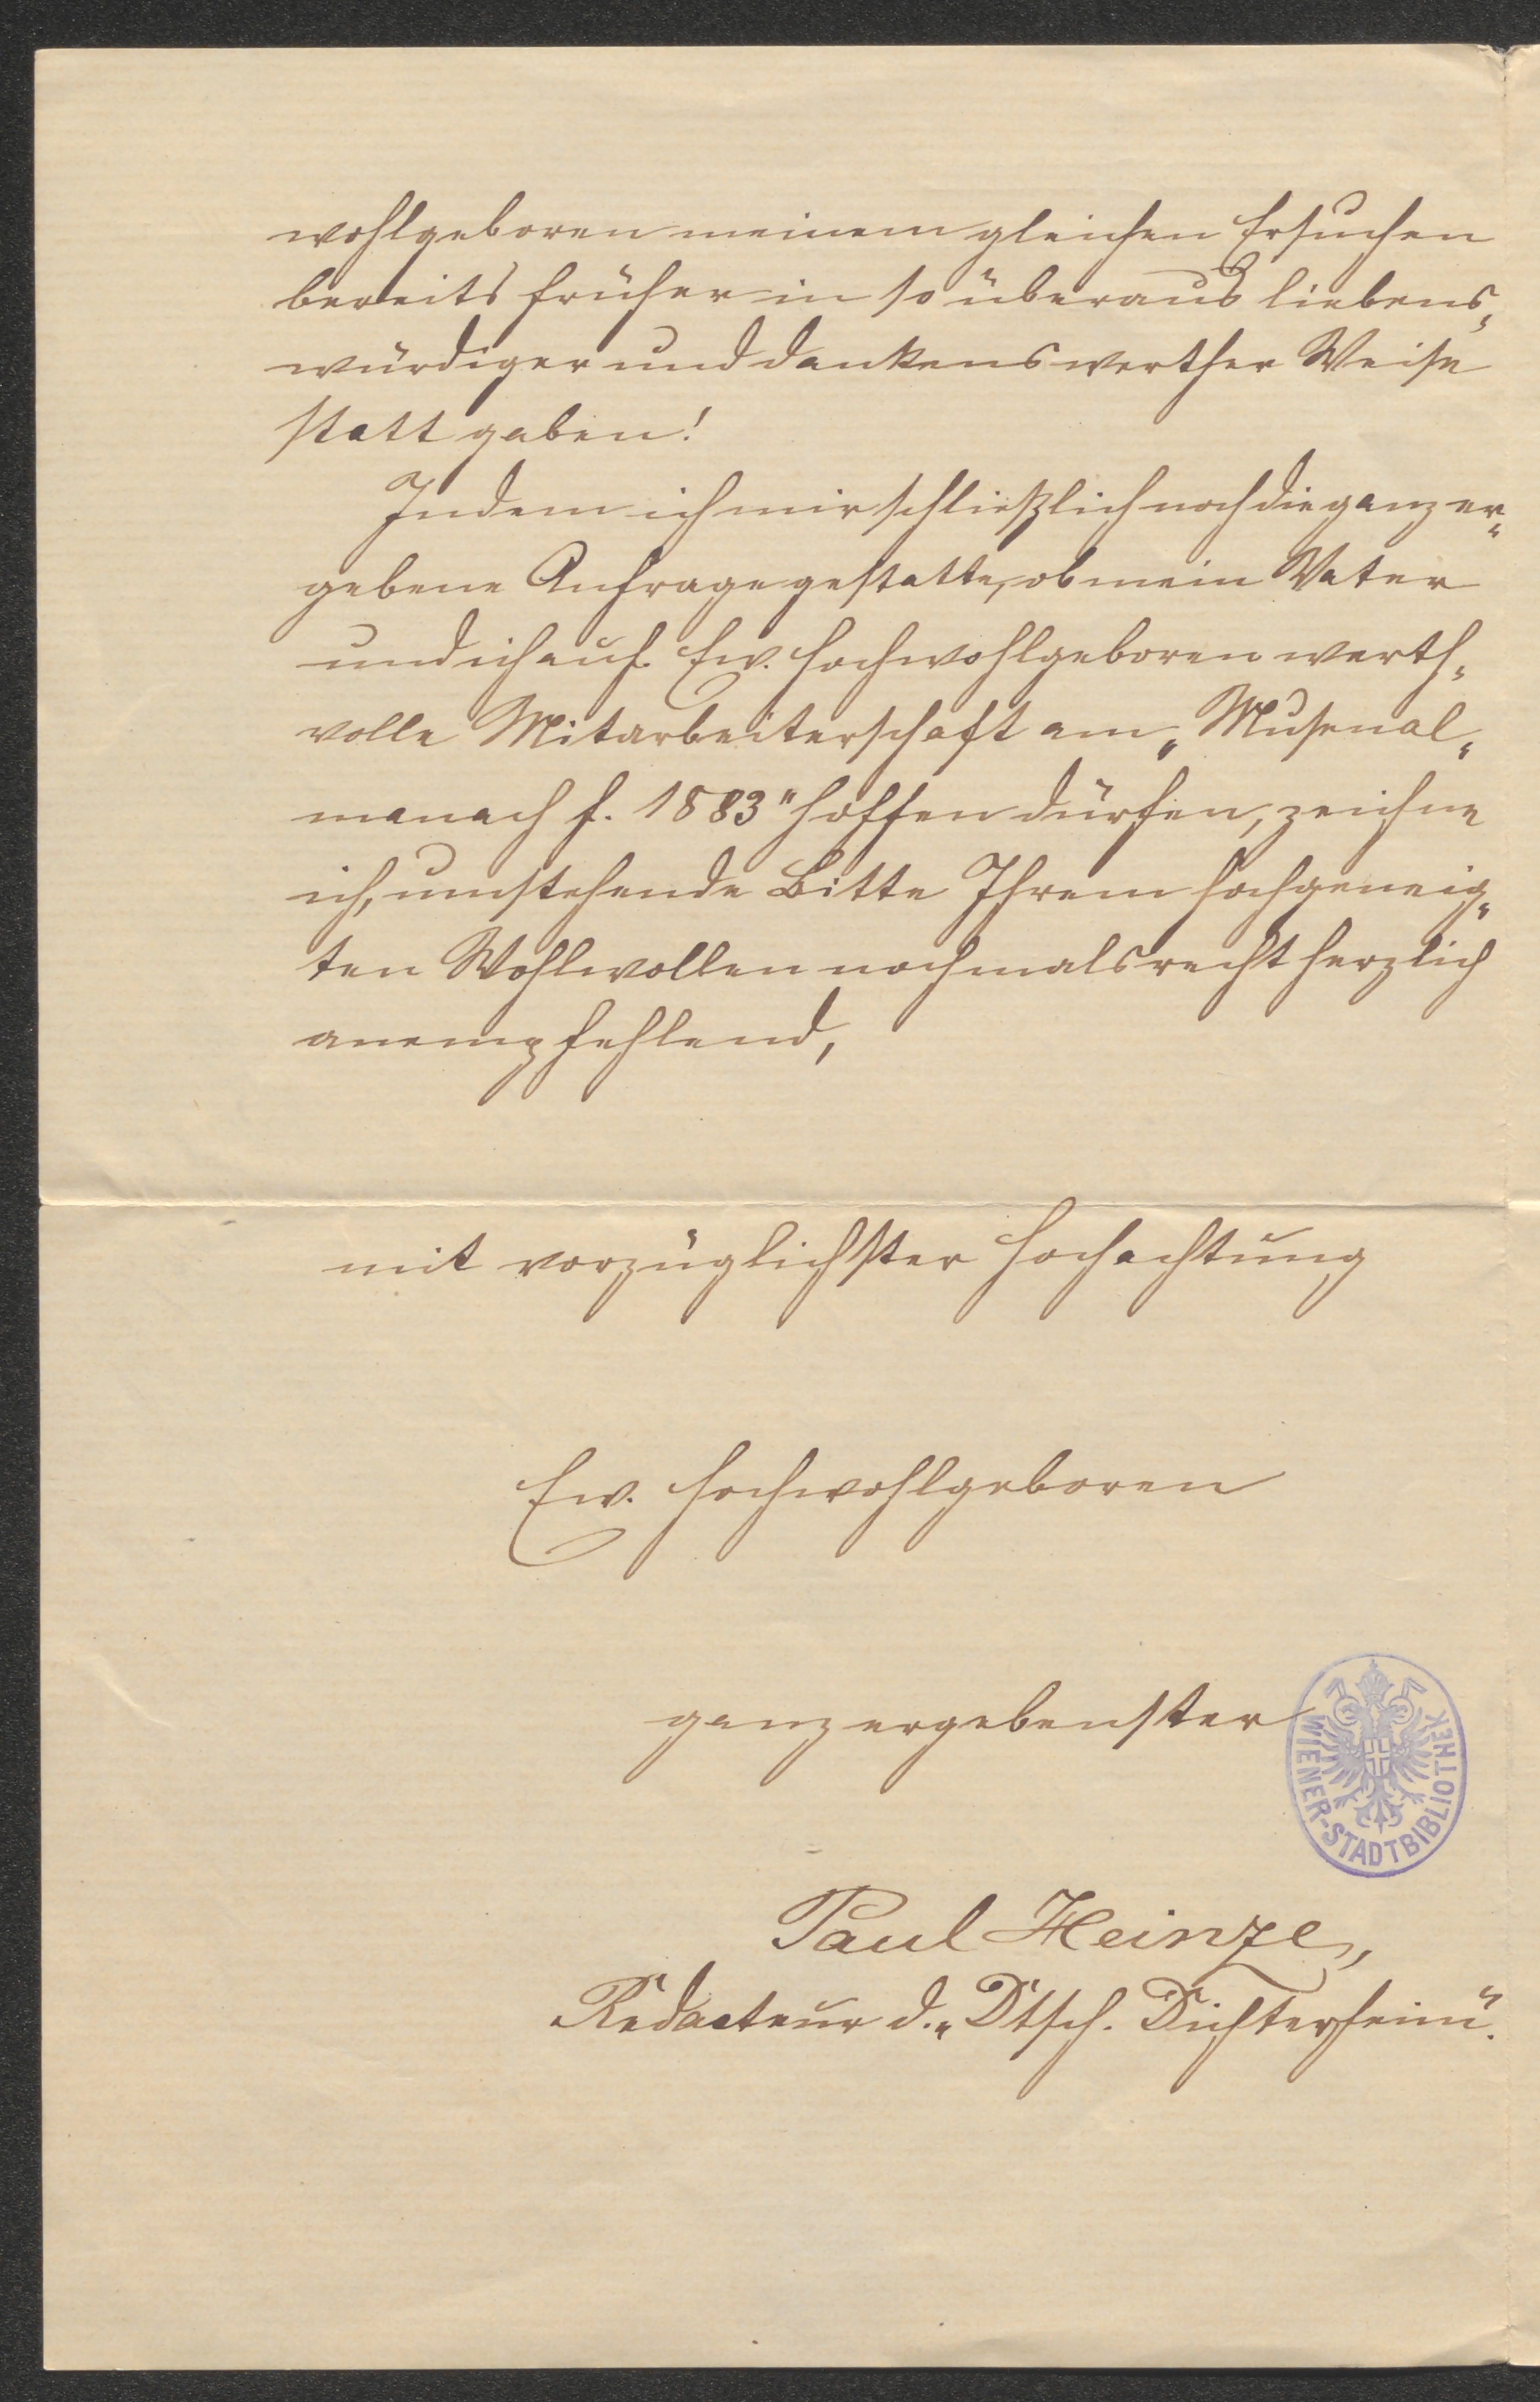 wohlgeboren meinem gleichen Ersuchen
bereits früher in so überaus liebens-
würdiger und dankenswerther Weise
statt gaben!
Indem ich mir schließlich noch die ganz er-
gebene Anfrage gestatte, ob mein Vater
und ich auf Ew. Hochwohlgeboren werth-
volle Mitarbeiterschaft am „Musenal-
manach f. 1883" hoffen dürfen, zeichne
ich, umstehende Bitte Ihrem hochgeneig-
ten Wohlwollen nochmals recht herzlich
anempfehlend,
mit vorzüglichster Hochachtung
Ew. Hochwohlgeboren
ganz ergebenster
WIENER-STADTBIBLIOTHEK
Paul Heinze,
Redacteur d. „Dtsch. Dichterheim".